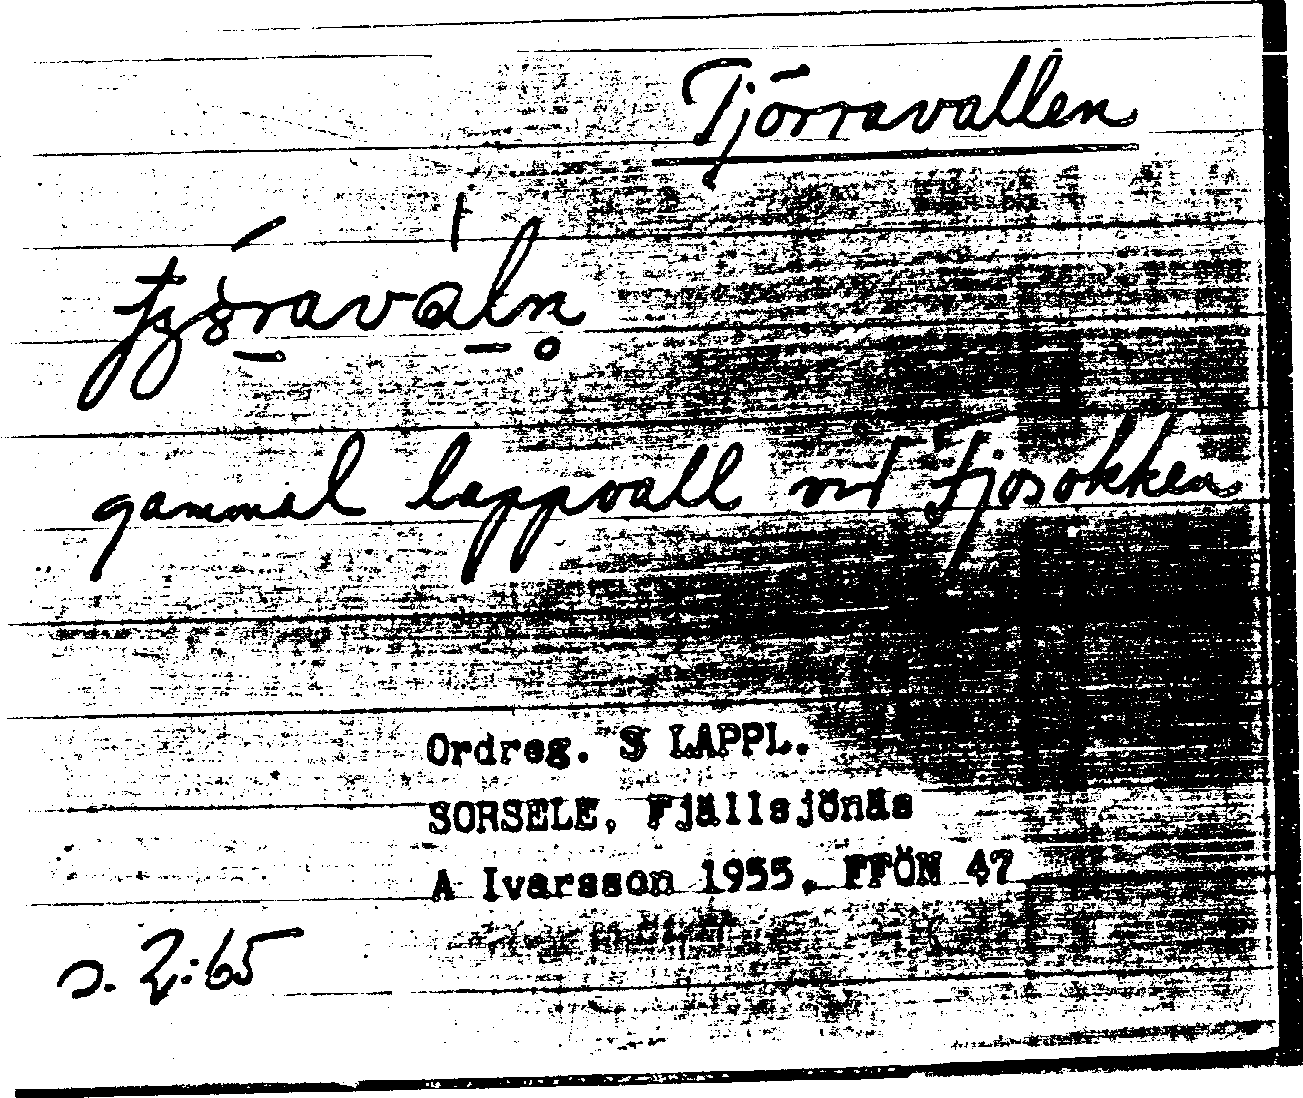 Tjörravallen
gammal lappvall vid Tjosokken
Ordreg. S LAPPL.
SORSELE, Fjällsjönäs
A Ivarsson 1955, FFÖN 47
s. 2:65